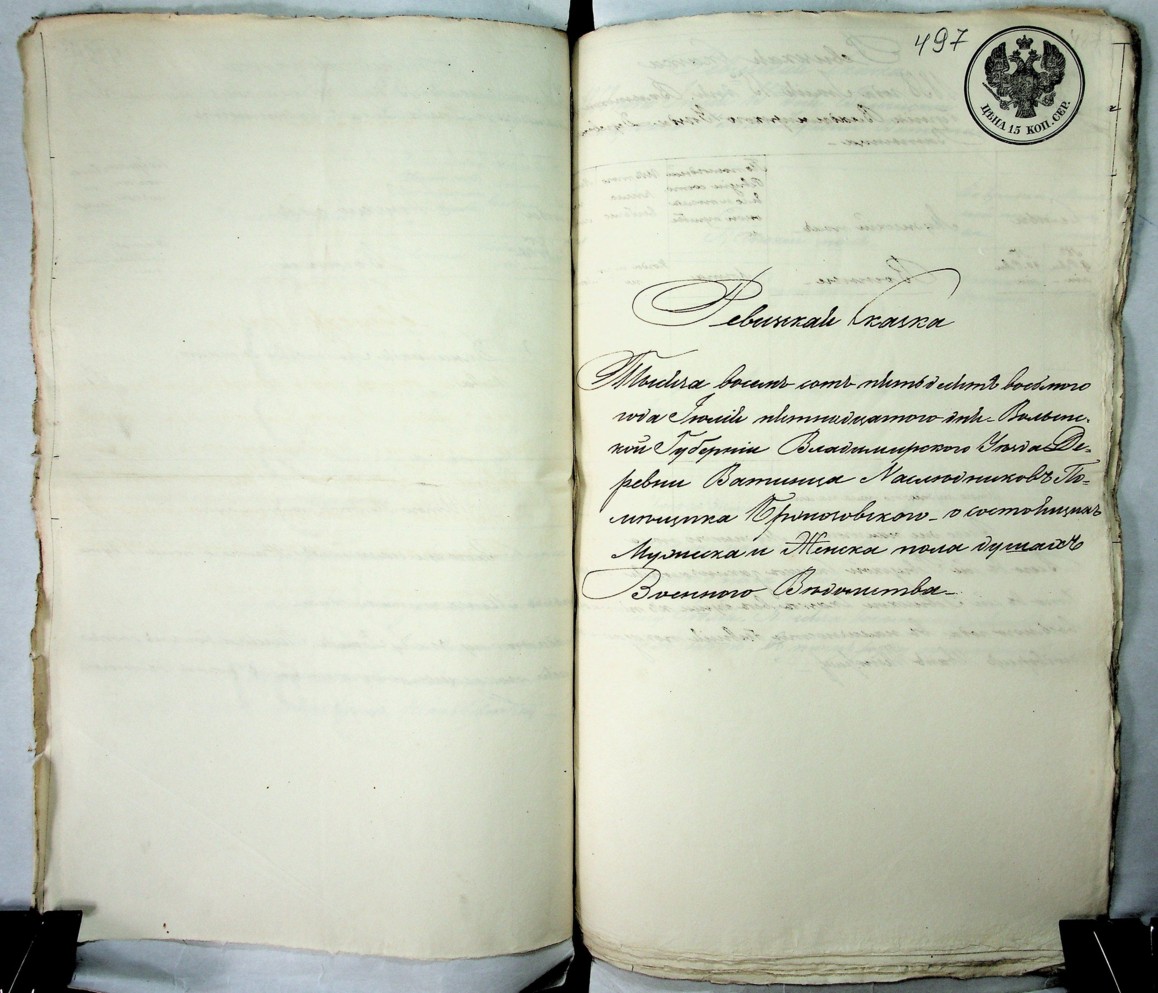 497
ЦѢНА 15 КОП. СЕР.
Ревизская сказка
Тысяча восемь сотъ пятьдесятъ восьмого
года Іюля пятнадцатого дня Волынс-
кой Губерніи Владимирского Уѣзда Де-
ревни Ватинца Наслѣдниковъ По-
мѣщика о состоящихъ
Мужеска и Женска пола душахъ
Военного Вѣдомства